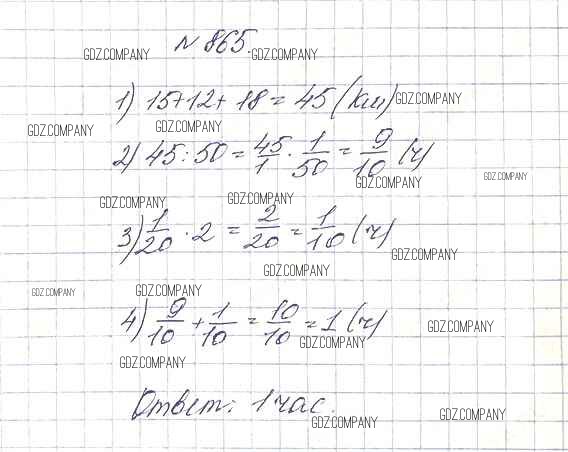 № 865.
GDZ.COMPANY GDZ.COMPANY
1) 15+12+18=45 (км) GDZ.COMPANY
GDZ.COMPANY GDZ.COMPANY
2) 45:50 = 45/1 · 1/50 = 9/10 (ч)
GDZ.COMPANY GDZ.COMPANY
GDZ.COMPANY GDZ.COMPANY
3) 1/20 · 2 = 2/20 = 1/10 (ч)
GDZ.COMPANY
GDZ.COMPANY
GDZ.COMPANY GDZ.COMPANY
4) 9/10 + 1/10 = 10/10 = 1 (ч)
GDZ.COMPANY
GDZ.COMPANY
GDZ.COMPANY
Ответ: 1 час.
GDZ.COMPANY GDZ.COMPANY